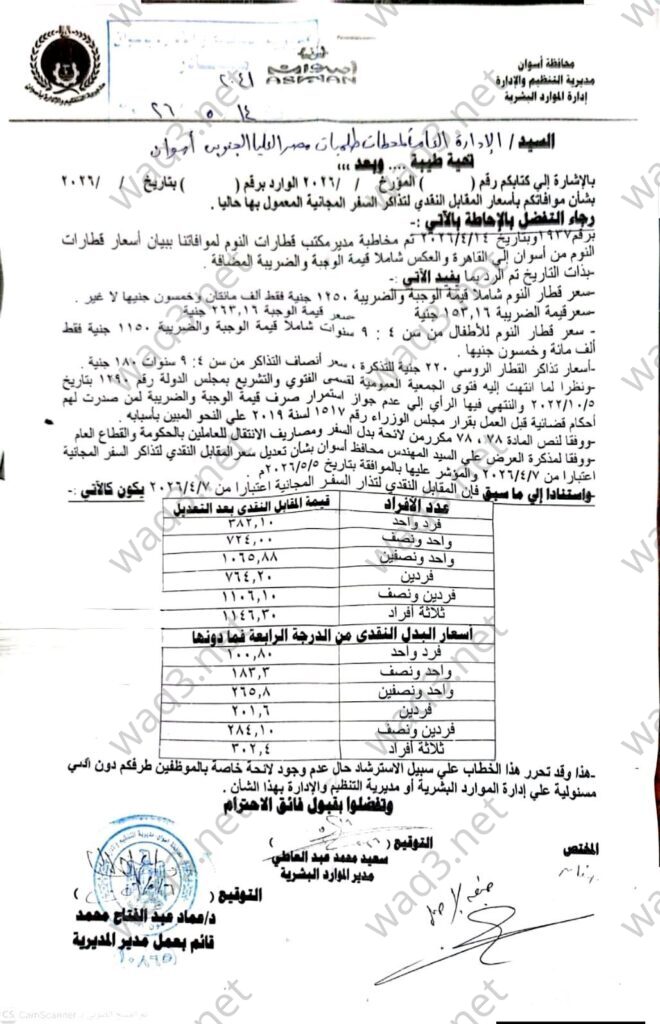 محافظة أسوان
مديرية التنظيم والإدارة
إدارة الموارد البشرية
أسوان
ASWAN
٢٠٤١
١٤ ٥ ٢٦
السيد / الإدارة العامة لمحطات طلمبات مصر العليا الجنوبى أسوان
تحية طيبة .... وبعد ،،،
بالإشارة إلي كتابكم رقم ( ) المؤرخ / /٢٠٢٦ الوارد برقم ( ) بتاريخ / / ٢٠٢٦
بشأن موافاتكم بأسعار المقابل النقدي لتذاكر السفر المجانية المعمول بها حاليا .
رجاء التفضل بالإحاطة بالآتي :-
برقم١٩٢٧وبتاريخ ٢٠٢٦/٤/١٤ تم مخاطبة مدير مكتب قطارات النوم لموافاتنا ببيان أسعار قطارات
النوم من أسوان إلي القاهرة والعكس شاملا قيمة الوجبة والضريبة المضافة .
-بذات التاريخ تم الرد بما يفيد الآتي :-
-سعر قطار النوم شاملا قيمة الوجبة والضريبة ١٢٥٠ جنية فقط ألف مائتان وخمسون جنيها لا غير .
-سعرقيمة الضريبة ١٥٣,١٦ جنية -سعر قيمة الوجبة ٢٦٣,١٦ جنية
- سعر قطار النوم للأطفال من سن ٤ : ٩ سنوات شاملا قيمة الوجبة والضريبة ١١٥٠ جنية فقط
ألف مائة وخمسون جنيها .
-أسعار تذاكر القطار الروسي ٢٢٠ جنية للتذكرة ، سعر أنصاف التذاكر من سن ٤: ٩ سنوات ١٨٠ جنية .
-ونظرا لما انتهت إليه فتوى الجمعية العمومية لقسمى الفتوي والتشريع بمجلس الدولة رقم ١٢٩٠ بتاريخ
٢٠٢٢/١٠/٥ والنتهي فيها الرأي إلي عدم جواز استمرار صرف قيمة الوجبة والضريبة لمن صدرت لهم
أحكام قضائية قبل العمل بقرار مجلس الوزراء رقم ١٥١٧ لسنة ٢٠١٩ علي النحو المبين بأسبابه .
-ووفقا لنص المادة ٧٨ ، ٧٨ مكررمن لائحة بدل السفر ومصاريف الانتقال للعاملين بالحكومة والقطاع العام
-ووفقا لمذكرة العرض علي السيد المهندس محافظ أسوان بشأن تعديل سعرالمقابل النقدي لتذاكر السفر المجانية
اعتبارا من ٢٠٢٦/٤/٧ والمؤشر عليها بالموافقة بتاريخ ٢٠٢٦/٥/٥م
-واستنادا إلي ما سبق فإن المقابل النقدي لتذار السفر المجانية اعتبارا من ٢٠٢٦/٤/٧ يكون كالآتي :-
عدد الأفراد قيمة المقابل النقدي بعد التعديل
فرد واحد ٣٨٢,١٠
واحد ونصف ٧٢٤,٠٠
واحد ونصفين ١٠٦٥,٨٨
فردين ٧٦٤,٢٠
فردين ونصف ١١٠٦,١٠
ثلاثة أفراد ١١٤٦,٣٠
أسعار البدل النقدى من الدرجة الرابعة فما دونها
فرد واحد ١٠٠,٨٠
واحد ونصف ١٨٣,٣
واحد ونصفين ٢٦٥,٨
فردين ٢٠١,٦
فردين ونصف ٢٨٤,١٠
ثلاثة أفراد ٣٠٢,٤
-هذا وقد تحرر هذا الخطاب علي سبيل الاسترشاد حال عدم وجود لائحة خاصة بالموظفين طرفكم دون أدني
مسئولية علي إدارة الموارد البشرية أو مديرية التنظيم والإدارة بهذا الشأن .
وتفضلوا بقبول فائق الاحترام
المختص
التوقيع ( )
سعيد محمد عبد العاطي
مدير الموارد البشرية
التوقيع ( )
د/عماد عبد الفتاح محمد
قائم بعمل مدير المديرية
waq3.net
CS CamScanner